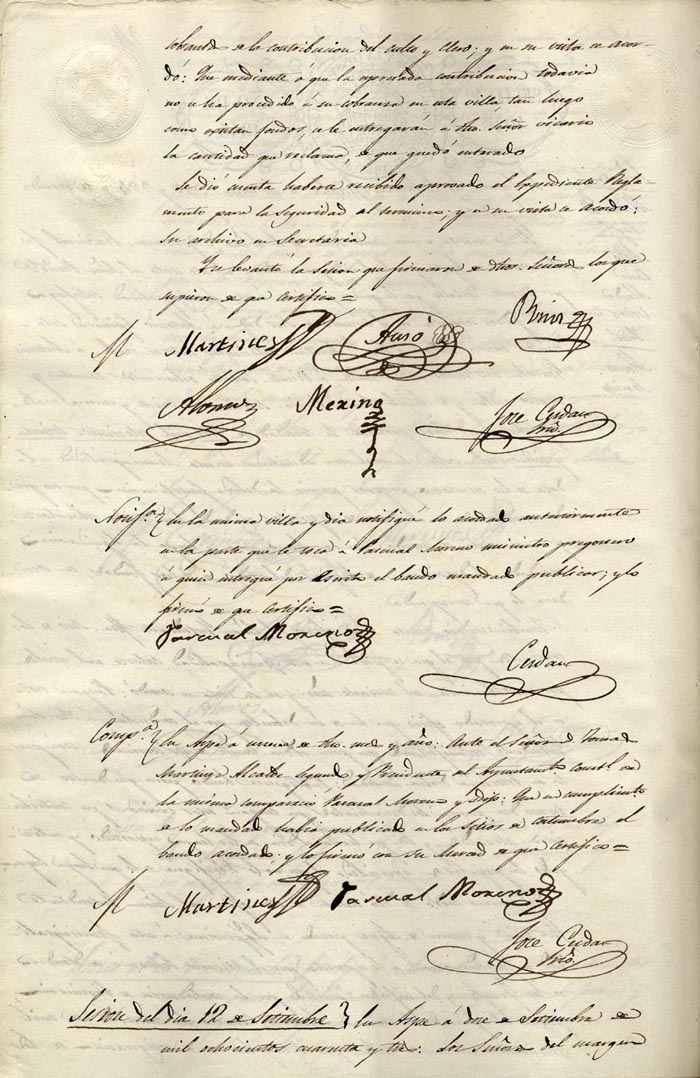 cobranza de la contribucion del culto y clero; y en su vista se acor-
dó: Que mediante á que la aprontada contribucion todavia
no se ha procedido á su cobranza en esta villa, tan luego
como existan fondos, se le entregarán á dho. Señor vicario
la cantidad que reclama, de que quedó enterado
Se dió cuenta haberse recibido aprovado el Espediente Regla-
mento para la seguridad del termino; y en su vista se acordó:
su archivo en Secretaria
Y se levantó la Sesion que firmaron de dhos. Señores los que
supieron de que certifico =
M Martinez Asió
Alonso Merino Jose Cerdan
Srio.
Notif.ᵒⁿ } En la misma villa y dia notifiqué lo acordado anteriormente
en la parte que le toca á Pascual Moreno ministro pregonero
á quien entregué por escrito el bando mandado publicar; y lo
firmó de que certifico =
Pascual Moreno
Cerdan
Comp.ᵃ } En Aspe á once de dho. mes y año: Ante el Señor D. Tomas
Martinez Alcalde segundo y Presidente del Ayuntamto. Constl. de
la misma comparació Pascual Moreno y Dijo: Que en cumplimto.
de lo mandado habia publicado en los sitios de costumbre el
bando acordado; y lo firmó con su Merced de que certifico =
M Martinez Pascual Moreno
Jose Cerdan
Srio.
Sesion del dia 12 de Setiembre } En Aspe á doce de Setiembre de
mil ochocientos cuarenta y tres: Los Señores del margen